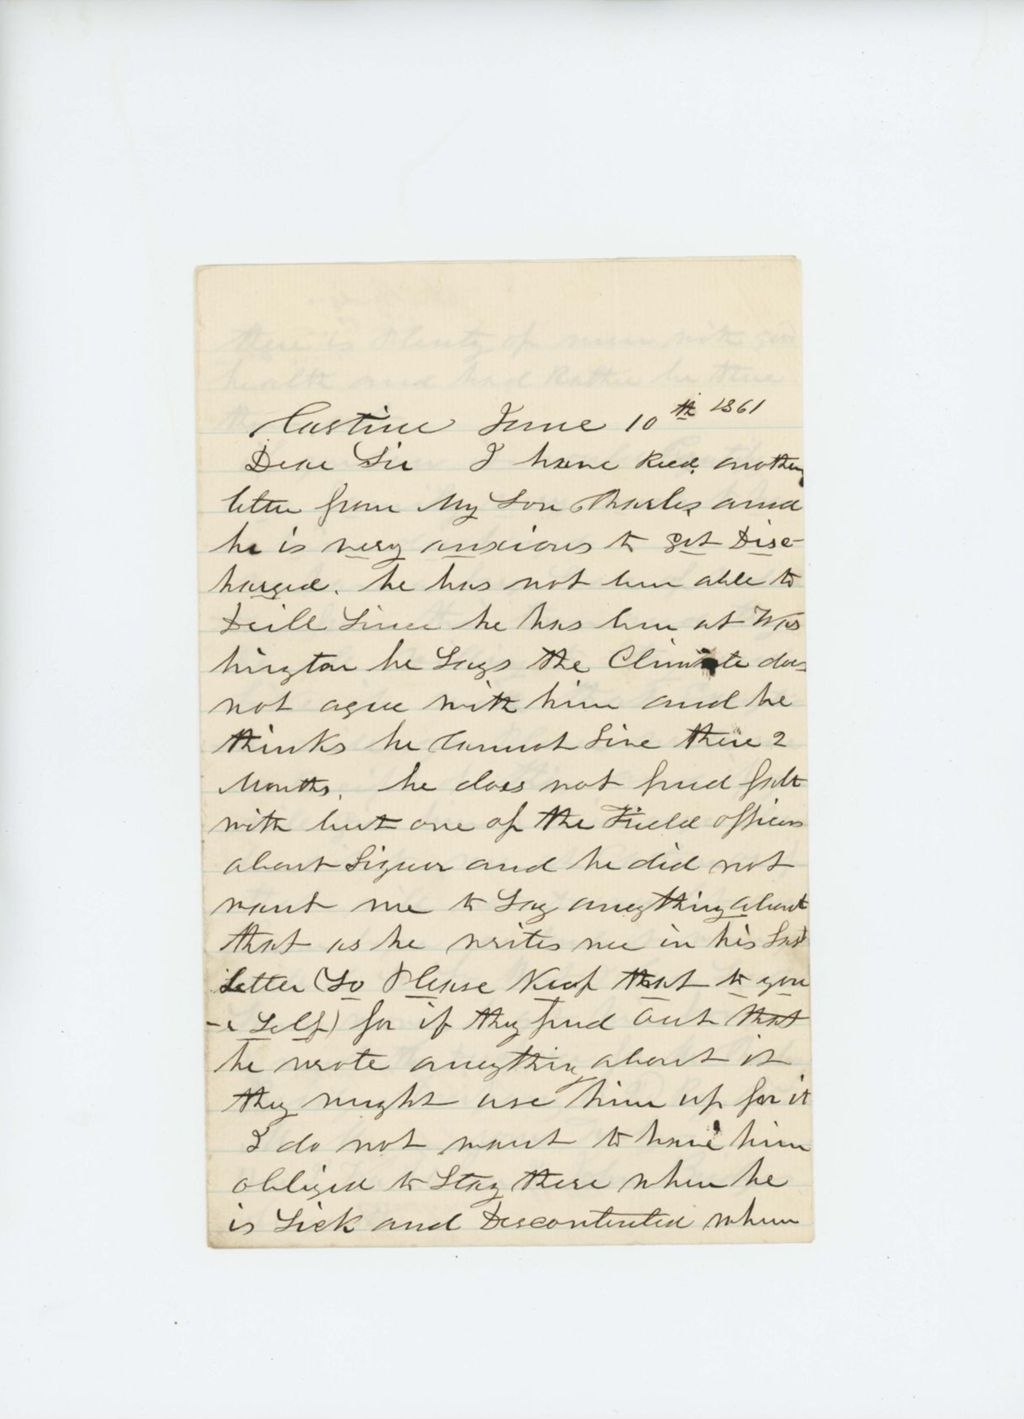 Castine June 10th 1861
Dear Sir I have Recd. another
letter from My Son Charles and
he is very anxious to get Disc-
harged. he has not been able to
Drill Since he has been at Was
hington he Says the Climate does
not agree with him and he
thinks he Cannot Live there 2
Months. he does not find falt
with but one of the Field officers
about Liquor and he did not
want me to Say anything about
that as he writes me in his Last
Letter (So Please Keep that to you
-r Self) for if they find out that
he wrote anything about it
they might use him up for it
I do not want to have him
obliged to Stay there when he
is Sick and Discontented when
there is Plenty of men with good
health and had Rather be there